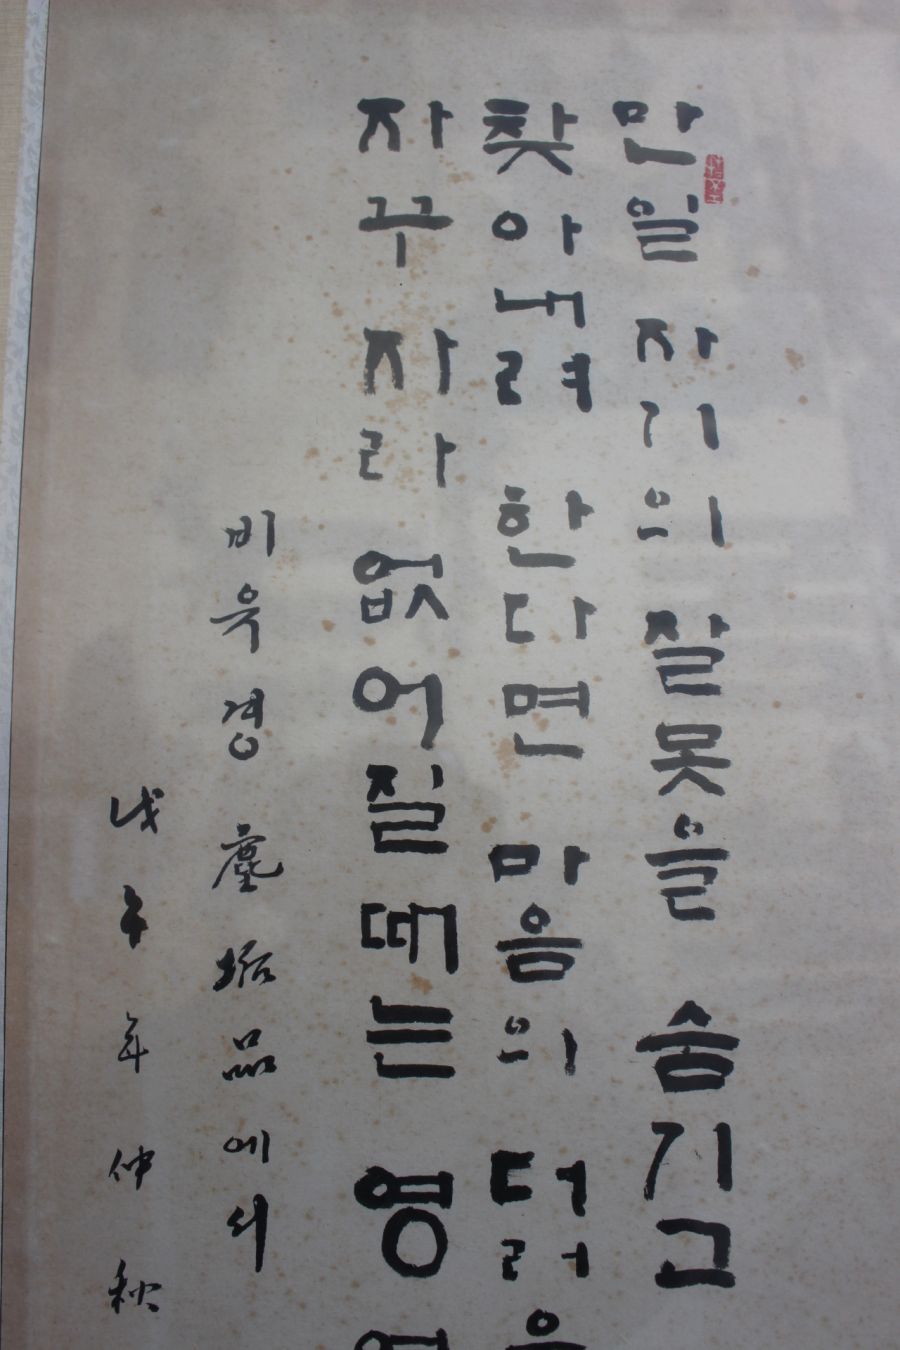 만일 자기의 잘못을 숨기고
찾아내려 한다면 마음의 더러
자꾸 자라 없어질 때는 영
비유경 塵垢品에서
戊午年仲秋